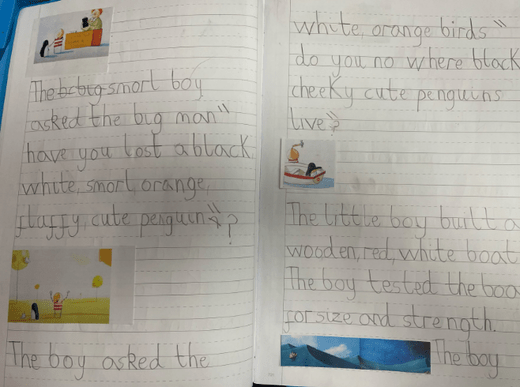 The b cbig smorl boy
asked the big man"
have you lost a black,
white, smorl orange,
fluffy, cute penguin"?
The boy asked the
white, orange birds"
do you no where black
cheeky cute penguins
live"?
The little boy built a
wooden, red, white boat.
The boy tested the boa
for size and strength.
The boy